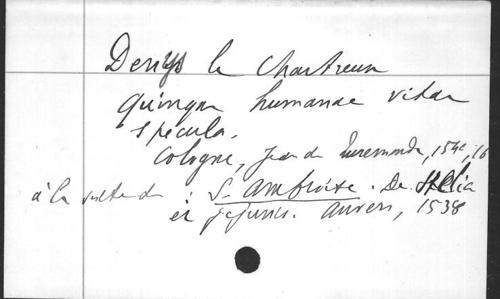 Denys le Chartreux
Quinque humanae vitae
specula.
Cologne, Jean de Ruremonde, 154, 16
à la suite de : S. Ambroise. De Helia
et jejunio. Anvers, 1538